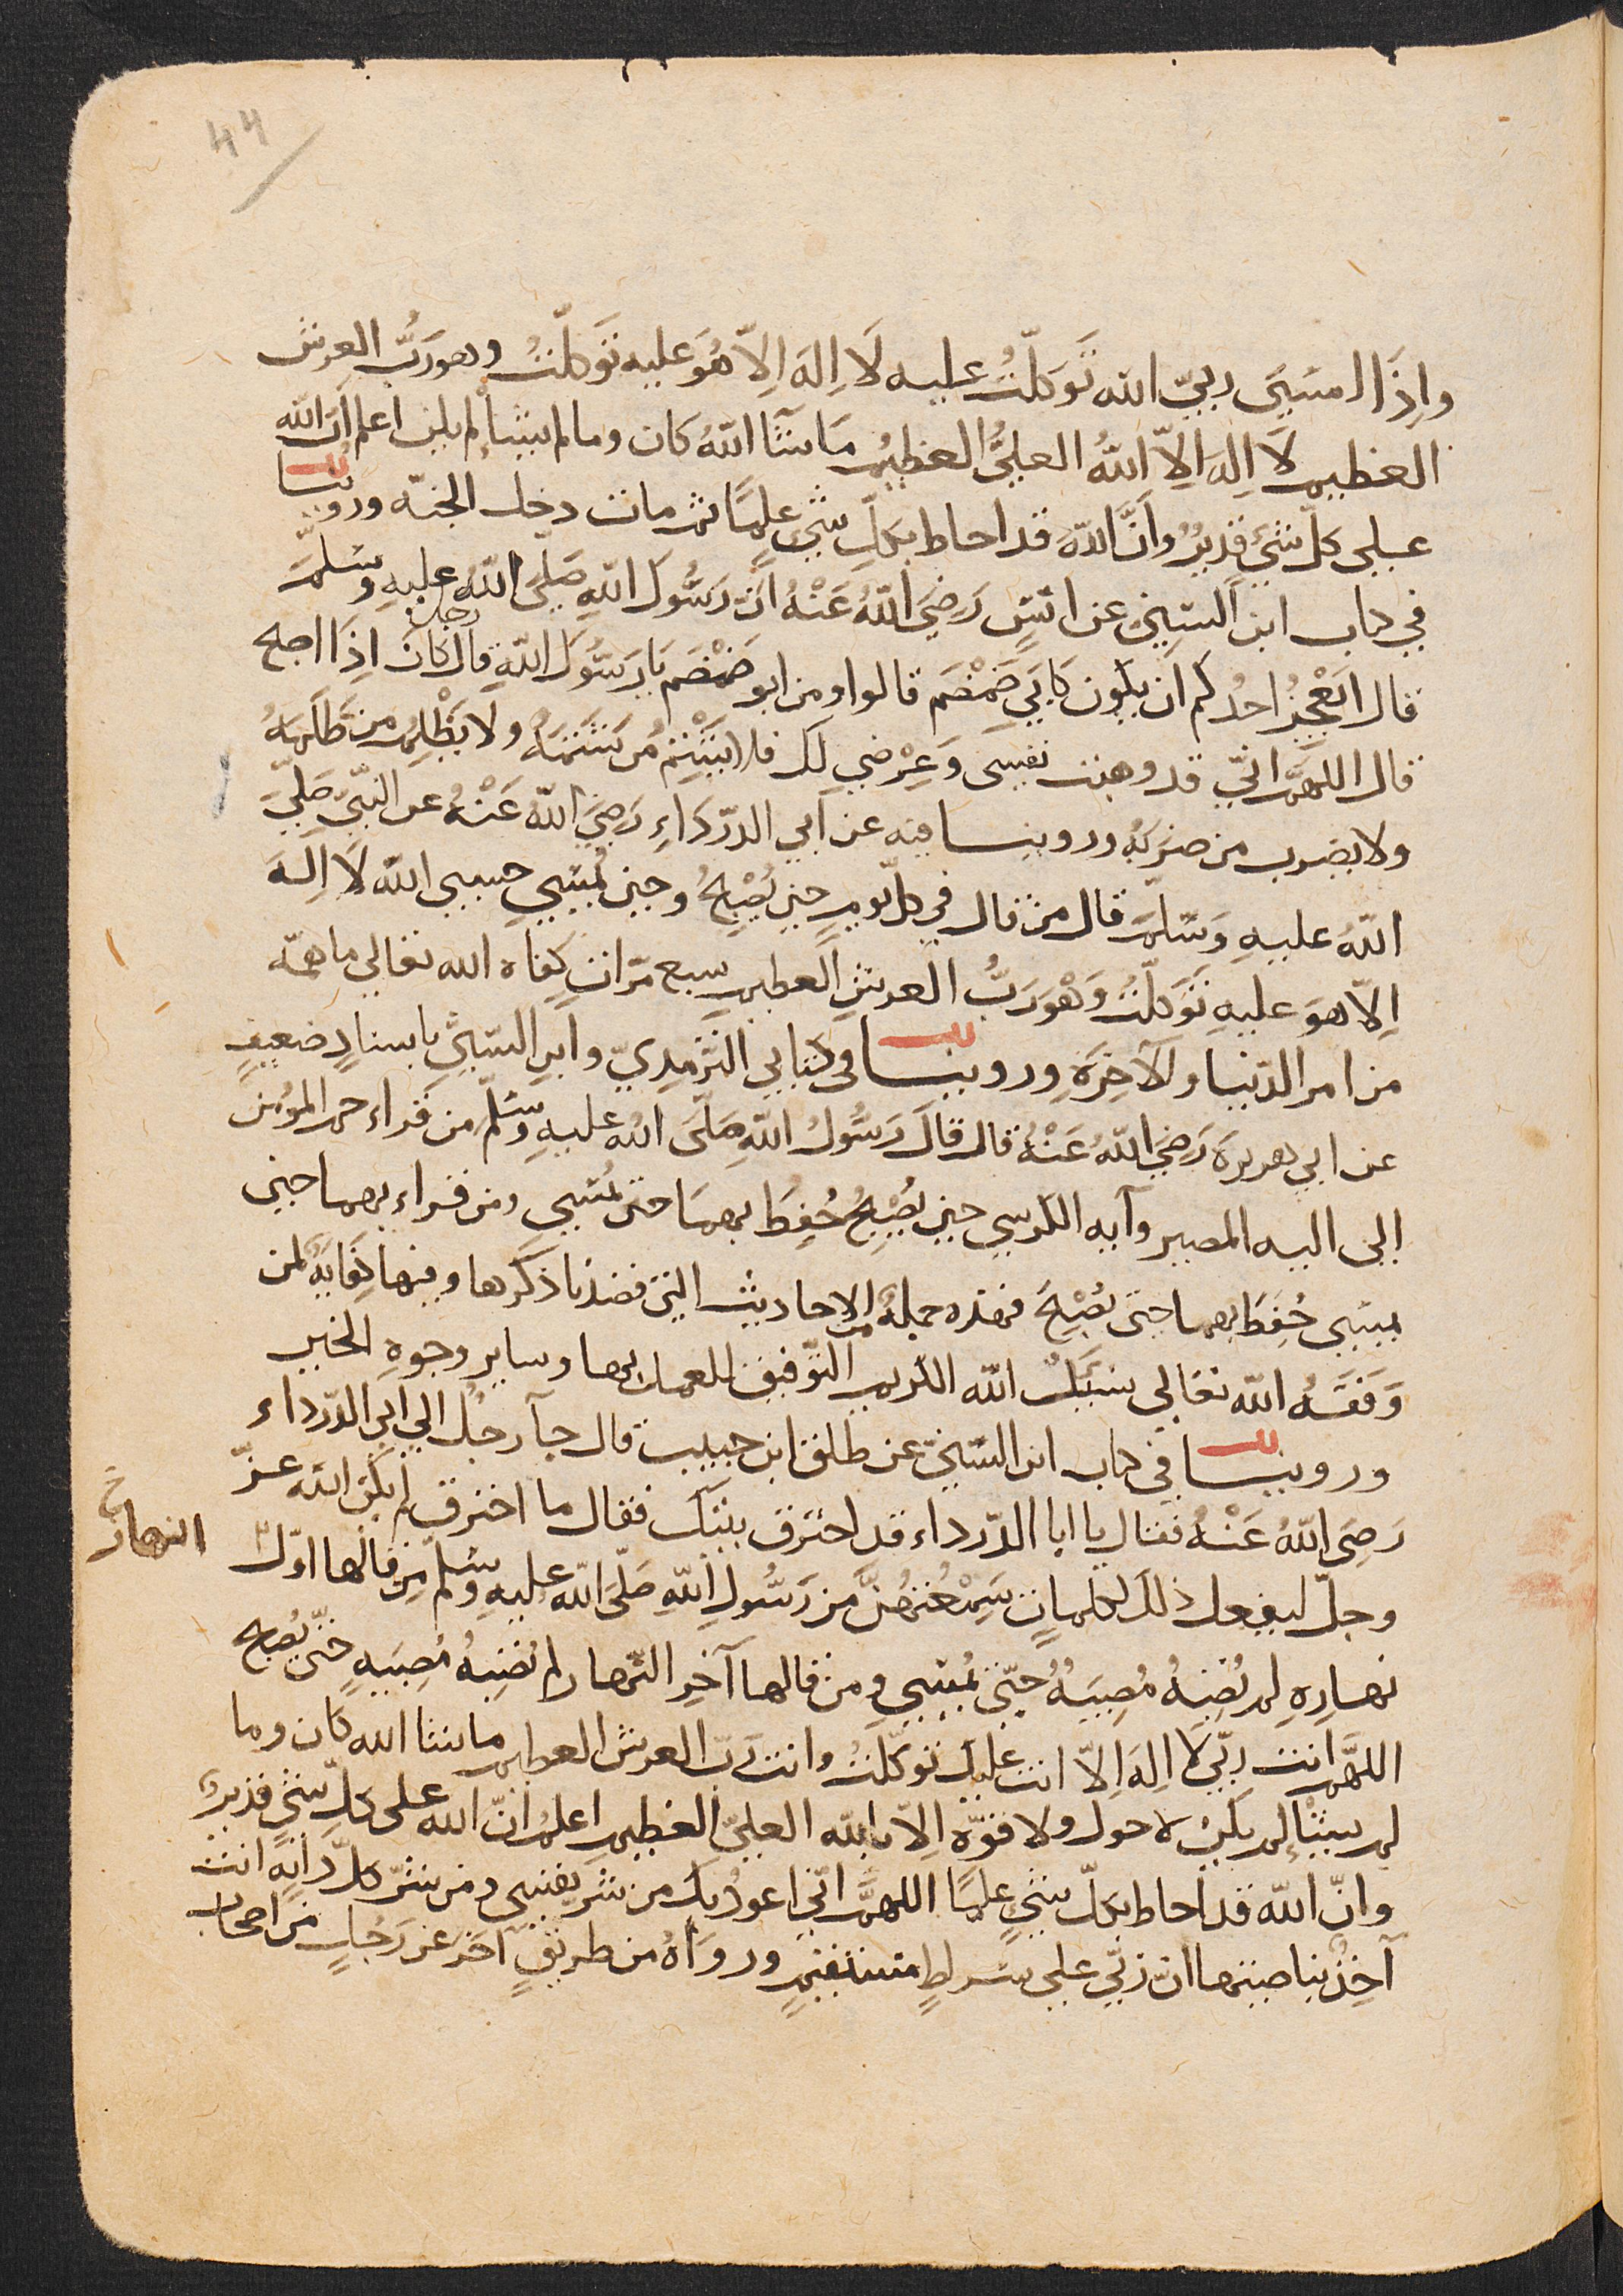 44
واِذَا امسَيَ ربيّ الله تَوَكلّتُ عليه لَا اِلهَ اِلاّ هُوَ عليه تَوكلّتُ وهورَبُّ العرش
العظيم لاَ اِلهَ اِلاّ اللهُ العليُّ العظيمُ مَا شَآَ اللهُ كان وما لم يشأ لم يكن اعلم اَنّ الله
على كلّ شئٍ قديرٌ وانَّ اللهَ قد احاط بكلّ شئٍ علمًا ثم مات دخل الجنّه وروينا
في كتاب ابن السّنيّ عن انسٍ رَضِيَ اللهُ عَنْهُ انّ رَسُولَ اللهِ صَلَّى اللهُ عليهِ وسَلّمَ
قال ايَعْجِزُ احدُ كم ان يكون كَابَي ضَمْضَم قالوا ومن ابو ضَمْضَم يَا رَسُولَ اللهِ قال كَانَ رجل اِذَا اصبح
قال اللهمَّ انّي قد وهبت نفسى وَعِرْضي لَكَ فلا يَشْتِمُ مَن شَتَمَهُ ولا يَظْلِمُ من ظَلَمَهُ
ولا يضرب من ضَرَبَهُ وروينا فيه عن ابي الدّرْدَاءِ رَضِيَ اللهُ عَنْهُ عن النبّيِّ صَلّيَ
اللهُ عليهِ وَسَلّمَ قال من قال في كلّ يومٍ حينَ يُصْبِحُ وحينَ يُمْسِي حسبي اللهُ لَا اِلَهَ
اِلاّ هوَ عليهِ تَوَكلّتُ وَهْوَرَبُّ العرشِ العظيمِ سبع مرّات كفاه الله تعالي ما همّه
من امر الدّنيا والآخِرَةِ وروينا في كتابي التّرْمِذِيّ وابن السّنيِّ باسنادٍ ضعيفٍ
عن ابي هريرة رَضِيَ اللهُ عَنْهُ قال قالَ رَسُولُ اللهِ صَلَّى اللهُ عليهِ وَسَلّم من قراء حم المؤمن
الى اليه المصير وآيه الكرسي حين يُصْبِحُ حُفِظَ بهما حتى يُمْسِي ومن قراء بهما حين
يمسى حُفِظَ بهما حتى يُصْبِحَ فهذه جملةٌ من الاحاديث التي قصدنا ذكرها وفيها كفايَةٌ لمن
وَفقَهُ الله تعالي نسَئَلُ الله الكريم التّوفيق للعمل بها وساير وجوهِ الخير
وروينا في كتاب ابن السّنيّ عن طلق ابن حبيب قال جآ رجُلٌ الي ابي الدّرداء
رَضِيَ اللهُ عَنْهُ فقال يا ابا الدّرداء قد احترق بيتك فقال ما احترق لم يكن الله عزّ
وجلّ ليفعل ذلك لكلماتٍ سَمِعْتُهُنَّ من رَسُولِ اللهِ صَلّيَ الله عليهِ وَسَلّم من قالها اوّل
النهار خ
نهارِهِ لم تُصِبْهُ مُصِيبَهٌ حتّى يُمْسِي ومن قالها آخِر النّهار لم تُصِبْهُ مُصِيبَهٌ حتّى يُصبح
اللهمَّ انت ربّي لا اِلهَ اِلاّ انت عليك توكّلتُ وانت رَبُّ العرش العظيم ما شا الله كان وما
لم يشأْ لم يكن لا حول ولا قوّة اِلاّ بالله العليّ العظيم اعلمُ انّ الله على كلّ شئٍ قديرٌ
وانّ الله قد احاط بكلّ شئٍ علمًا اللهمَّ انّي اعوذُ بك من شرّ نفسي ومن شرّ كلّ دابّهٍ انت
آخِذٌ بناصيتها انّ ربّي على صراطٍ مستقيمٍ وروَاهُ من طريقٍ آخَرَ عن رَجُلٍ من اصحاب